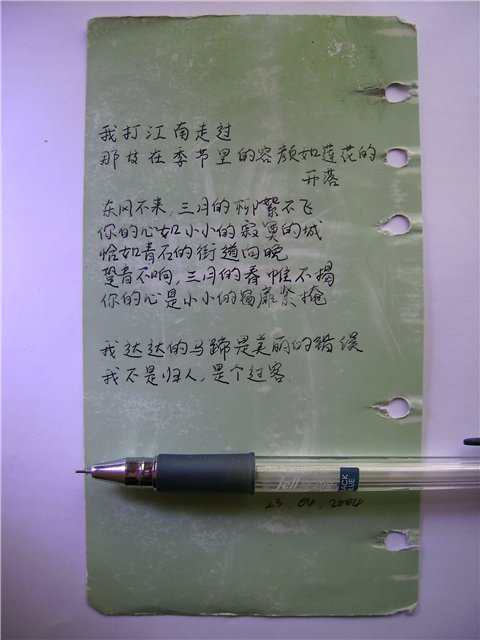 我打江南走过
那枝在季节里的容颜如莲花的
开落
东风不来,三月的柳絮不飞
你的心如小小的寂寞的城
恰如青石的街道向晚
跫音不响,三月的春帷不揭
你的心是小小的窗扉紧掩
我达达的马蹄是美丽的错误
我不是归人,是个过客
23.04.2004